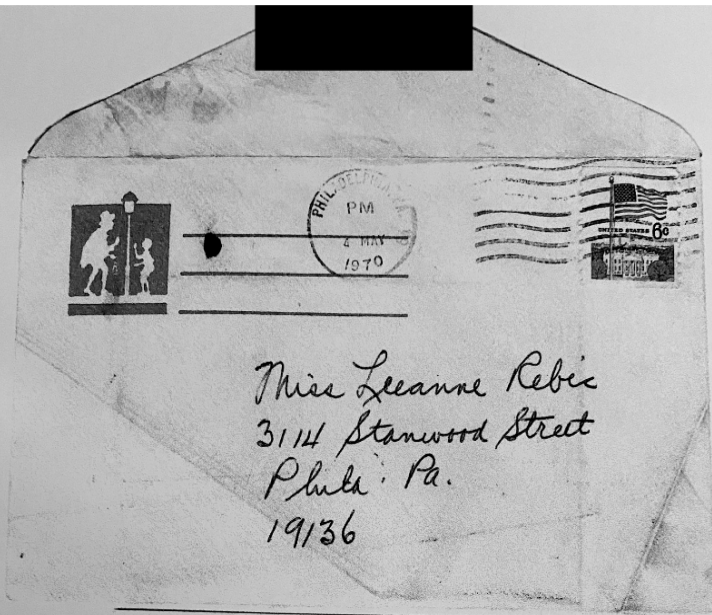 PHILADELPHIA, PA
PM
4 MAY
1970
UNITED STATES 6¢
Miss Leeanne Rebic
3114 Stanwood Street
Phila. Pa.
19136